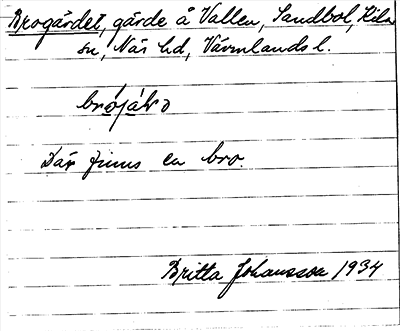 Brogärdet, gärde å Vallen, Sandbol, Kila
sn, Näs hd, Värmlands l.
Där finns en bro.
Britta Johansson 1934